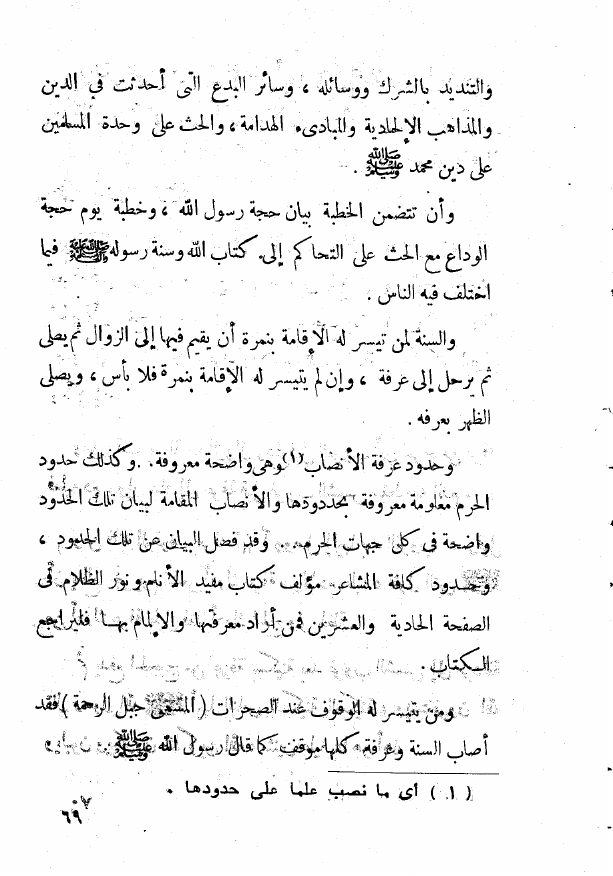 والتنديد بالشرك ووسائله ، وسائر البدع التى أحدثت فى الدين
والمذاهب الإلحادية والمبادىء الهدامة ، والحث على وحدة المسلمين
على دين محمد ﷺ .
وأن تتضمن الخطبة بيان حجة رسول الله ، وخطبة يوم حجة
الوداع مع الحث على التحاكم إلى كتاب الله وسنة رسوله ﷺ فيما
اختلف فيه الناس .
والسنة لمن تيسر له الإقامة بنمرة أن يقيم فيها إلى الزوال ثم يصلى
ثم يرحل إلى عرفة ، وإن لم يتيسر له الإقامة بنمرة فلا بأس ، ويصلى
الظهر بعرفه .
وحدود عرفة الأنصاب (١) وهى واضحة معروفة . وكذلك حدود
الحرم معلومة معروفة بحدودها والأنصاب المقامة لبيان تلك الحدود
واضحة فى كل جهات الحرم . . وقد فصل البيان عن تلك الحدود ،
وحدود كافة المشاعر مؤلف كتاب مفيد الأنام ونور الظلام فى
الصفحة الحادية والعشرين فمن أراد معرفتها والإلمام بها فليراجع
الكتاب .
ومن يتيسر له الوقوف عند الصخرات ( المسمى جبل الرحمة ) فقد
أصاب السنة وعرفة كلها موقف كما قال رسول الله ﷺ
( ١ ) أى ما نصب علما على حدودها .
٦٩